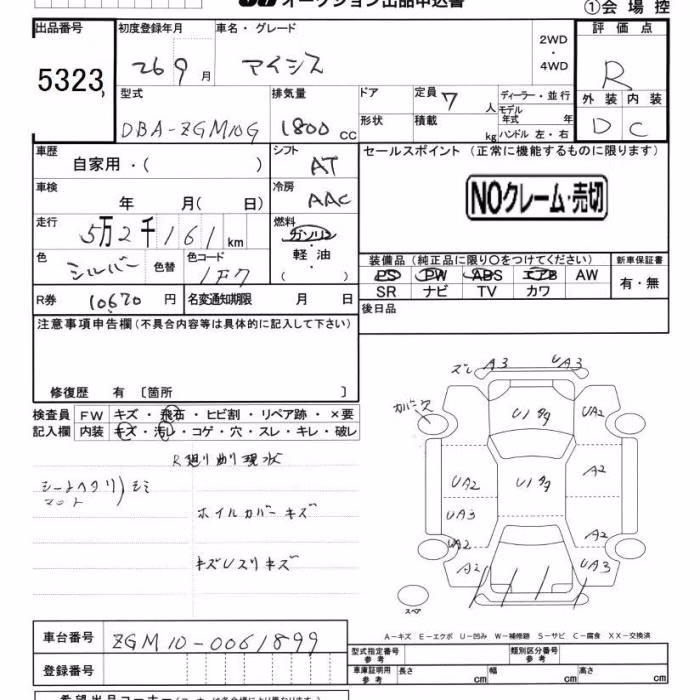 オークション出品申込書
①会場控
出品番号 初度登録年月 車名・グレード 評価点
5323 26 9月 アイシス 2WD・4WD R
型式 排気量 ドア 定員 7人 ディーラー・並行 外装 内装
DBA-ZGM10G 1800cc 形状 積載 kg モデル年式 年 ハンドル 左・右 D C
車歴 シフト セールスポイント (正常に機能するものに限ります)
自家用・( ) AT
車検 年 月( 日) 冷房 AAC NOクレーム・売切
走行 5万2千161km 燃料 ガソリン
軽油
( )
色 シルバー 色替 色コード 1F7 装備品 (純正品に限り○をつけてください) 新車保証書
PS PW ABS エアB AW 有・無
SR ナビ TV カワ
R券 10670円 名変通知期限 月 日 後日品
注意事項申告欄(不具合内容等は具体的に記入して下さい)
修復歴 有 〔箇所 〕
検査員 FW キズ・飛石・ヒビ割・リペア跡・×要
記入欄 内装 キズ・汚レ・コゲ・穴・スレ・キレ・破レ
R廻り削り現状
シートヘタリ シミ
マット
ホイルカバーキズ
キズUスリキズ
ズレ A3 UA3
カバー穴 U1タタ UA2
UA2 U1タタ A2
UA3
UA2 A2
A2 UA3
スペア
A-キズ E-エクボ U-凹み W-補修跡 S-サビ C-腐食 XX-交換済
車台番号 ZGM10-0061899
型式指定番号 参考 類別区分番号 参考
登録番号 車庫証明用 参考 長さ cm 幅 cm 高さ cm